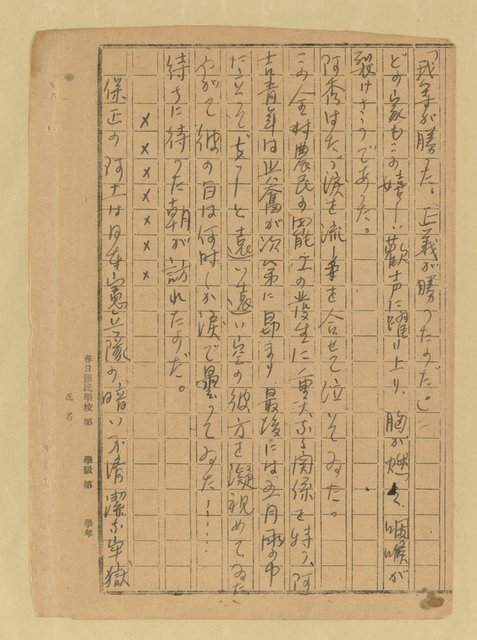 「我等が勝った、正義が勝ったのだ。」
どの家もこの嬉しい歓声に躍り上り、胸が燃え、咽喉が
裂けさうであった。
阿秀はたゞ涙を流し手を合せて泣いてゐた。
この全村農民の罷工の発生に重大な関係を持つ、阿
吉青年は興奮が次第に昂まり最後には五月雨の中
に立って と遠い遠い空の彼方を凝視めてゐた
やがて彼の目は何時しか涙で曇ってゐた……
待ちに待った朝が訪れたのだ。
×××××××
保正の阿士は日本憲兵隊の暗い不清潔な牢獄
春日國民學校 第 學級 第 學年
氏名